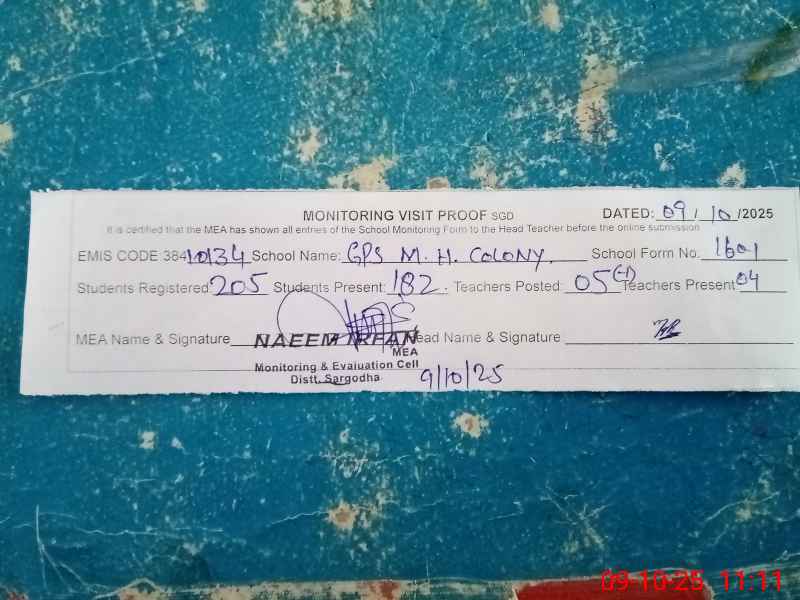 MONITORING VISIT PROOF SGD DATED: 09 / 10 /2025
It is certified that the MEA has shown all entries of the School Monitoring Form to the Head Teacher before the online submission
EMIS CODE 38410134 School Name: GPS M. H. COLONY. School Form No: 1601
Students Registered 205 Students Present: 182. Teachers Posted: 05 (-1) Teachers Present 04
MEA Name & Signature Head Name & Signature
NAEEM IRFAN
MEA
Monitoring & Evaluation Cell
Distt. Sargodha
9/10/25
09-10-25 11:11